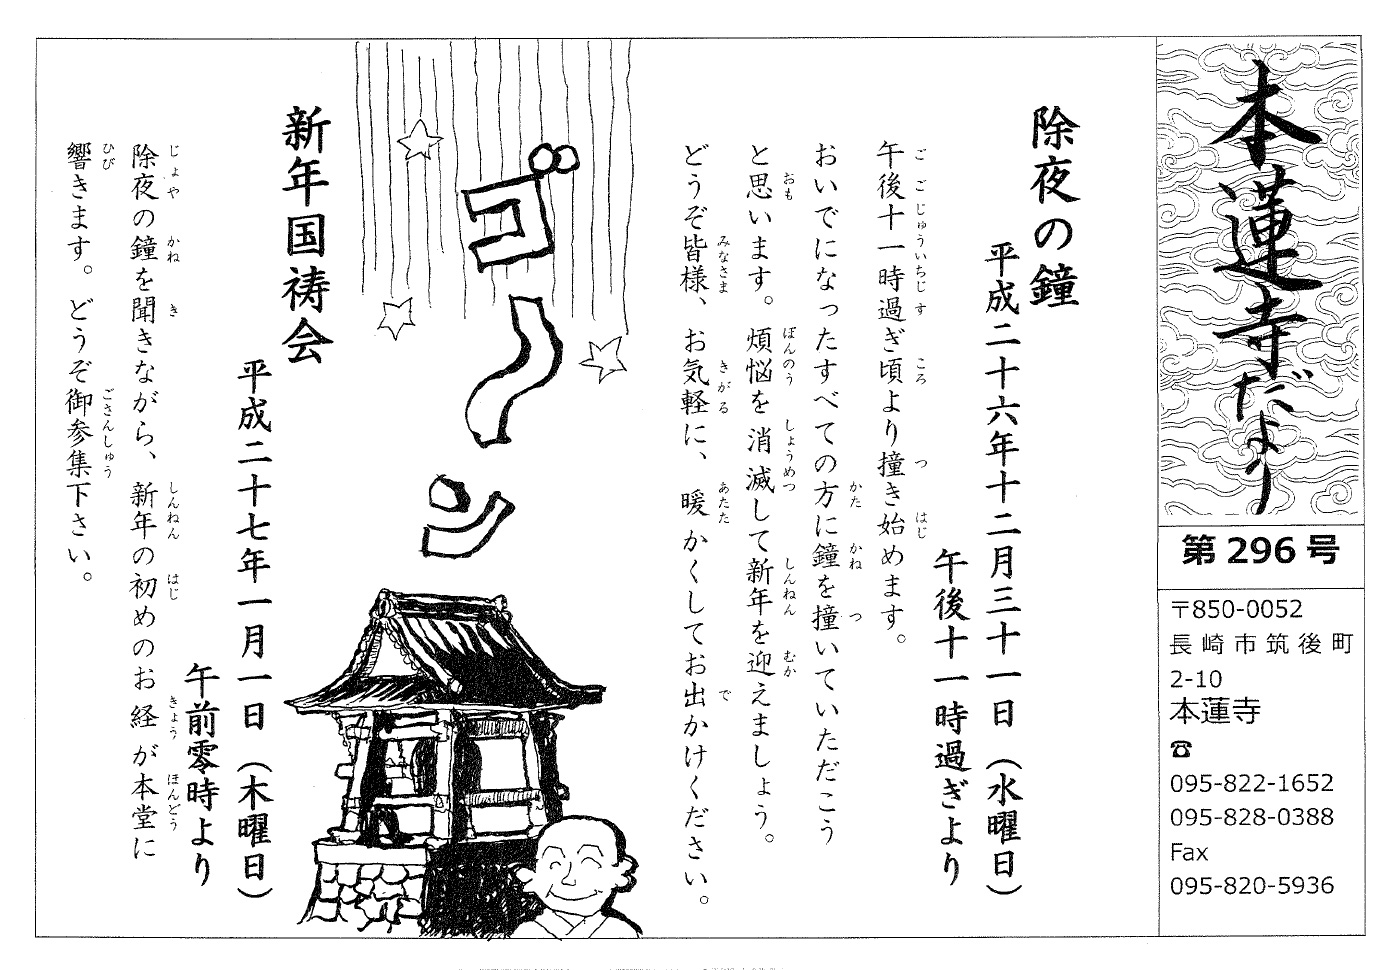 本蓮寺だより
第 296 号
〒850-0052
長崎市筑後町
2-10
本蓮寺
☎
095-822-1652
095-828-0388
Fax
095-820-5936
除夜の鐘
平成二十六年十二月三十一日（水曜日）
午後十一時過ぎより
午後十一時過ぎ頃より撞き始めます。
おいでになったすべての方に鐘を撞いていただこう
と思います。煩悩を消滅して新年を迎えましょう。
どうぞ皆様、お気軽に、暖かくしてお出かけください。
ゴーン
新年国祷会
平成二十七年一月一日（木曜日）
午前零時より
除夜の鐘を聞きながら、新年の初めのお経が本堂に
響きます。どうぞ御参集下さい。